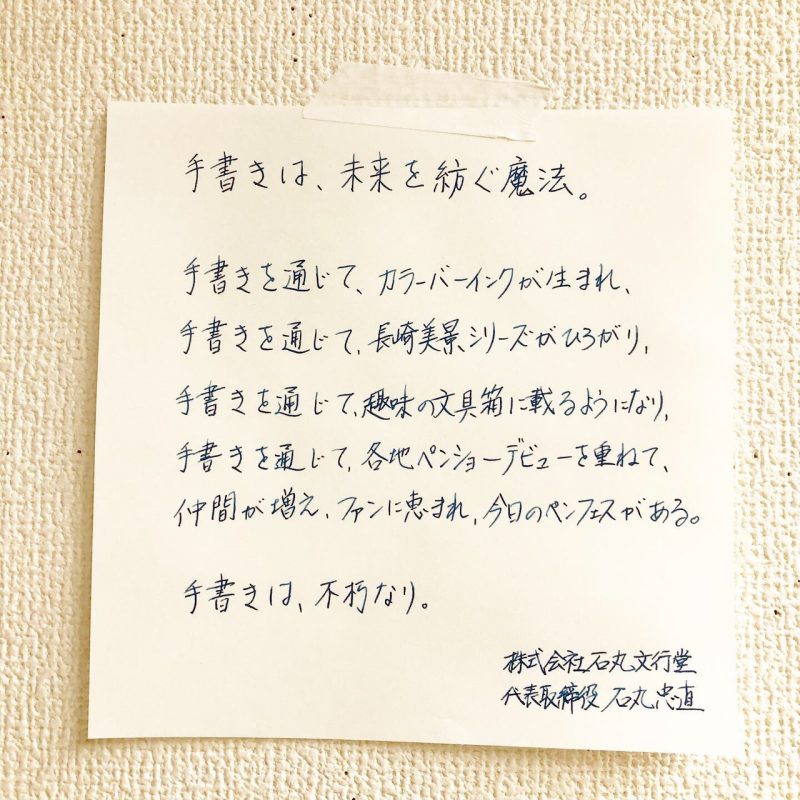 手書きは、未来を紡ぐ魔法。
手書きを通じて、カラーバーインクが生まれ、
手書きを通じて、長崎美景シリーズがひろがり、
手書きを通じて、趣味の文具箱に載るようになり、
手書きを通じて、各地ペンショーデビューを重ねて、
仲間が増え、ファンに恵まれ、今日のペンフェスがある。
手書きは、不朽なり。
株式会社石丸文行堂
代表取締役 石丸忠直